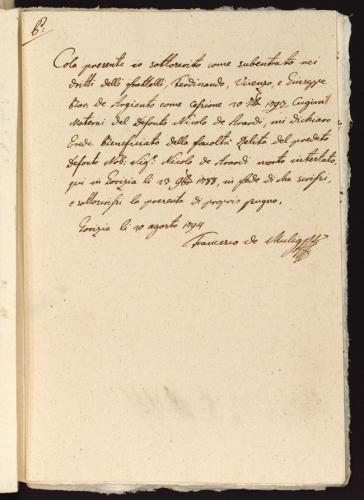 6:
Colla presente io sottoscritto come subentrato nei
dritti delli fratelli, Ferdinando, Vicenzo, e Giuseppe
de Argento come Cessione 20 1793 Cugini
Materni del defonto Nicolo de Orardi, mi dichiaro
Erede beneficiato della facoltà relita del predeto
defonto Nob. Sigr. Nicolo de Orardi morto intestato,
qui in Gorizia li 23 9bre 1788, in fede di che scrissi,
e sottoscrissi la presente di proprio pugno.
Gorizia li 20 agosto 1794
Francesco de